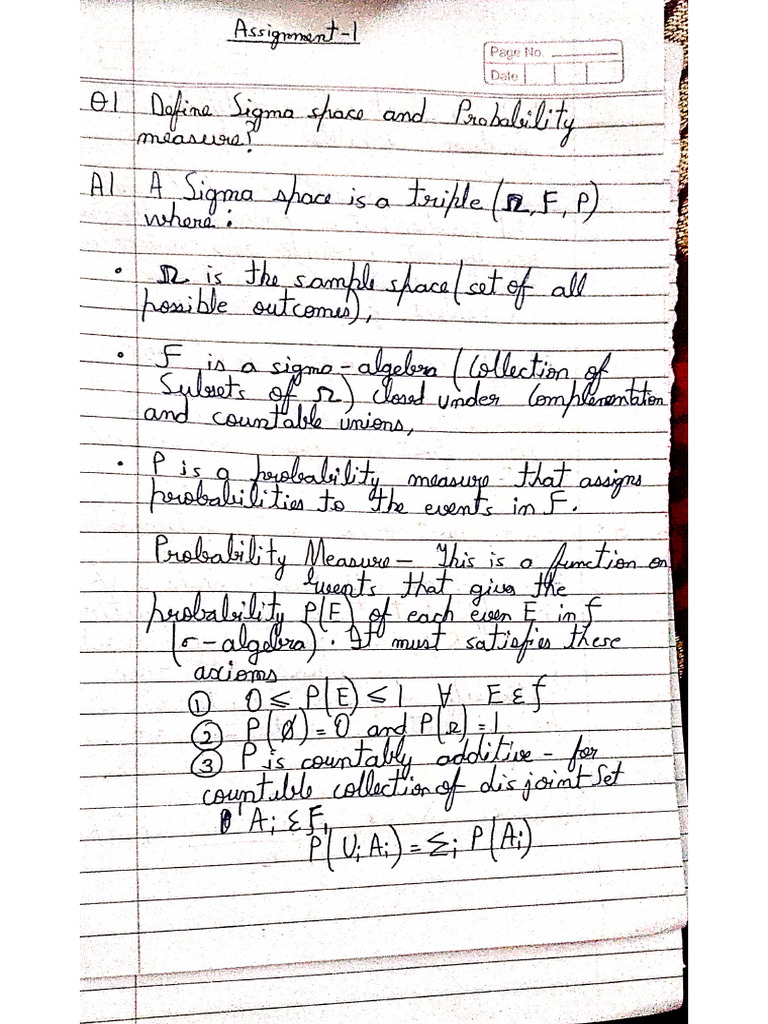 Assignment-1
Page No.
Date
Q1 Define Sigma space and Probability
measure?
A1 A Sigma space is a triple (Ω, F, P)
where:
• Ω is the sample space (set of all
possible outcomes),
• F is a sigma-algebra (Collection of
Subsets of Ω) closed under Complementation
and countable unions,
• P is a probability measure that assigns
probabilities to the events in F.
Probability Measure - This is a function on
events that gives the
probability P(E) of each even E in f
(σ-algebra). It must satisfies these
axioms
① 0 ≤ P(E) ≤ 1 ∀ E ε f
② P(ø) = 0 and P(Ω) = 1
③ P is countably additive - for
countible collection of disjoint Set
Ai ε F,
P(Ui Ai) = Σi P(Ai)